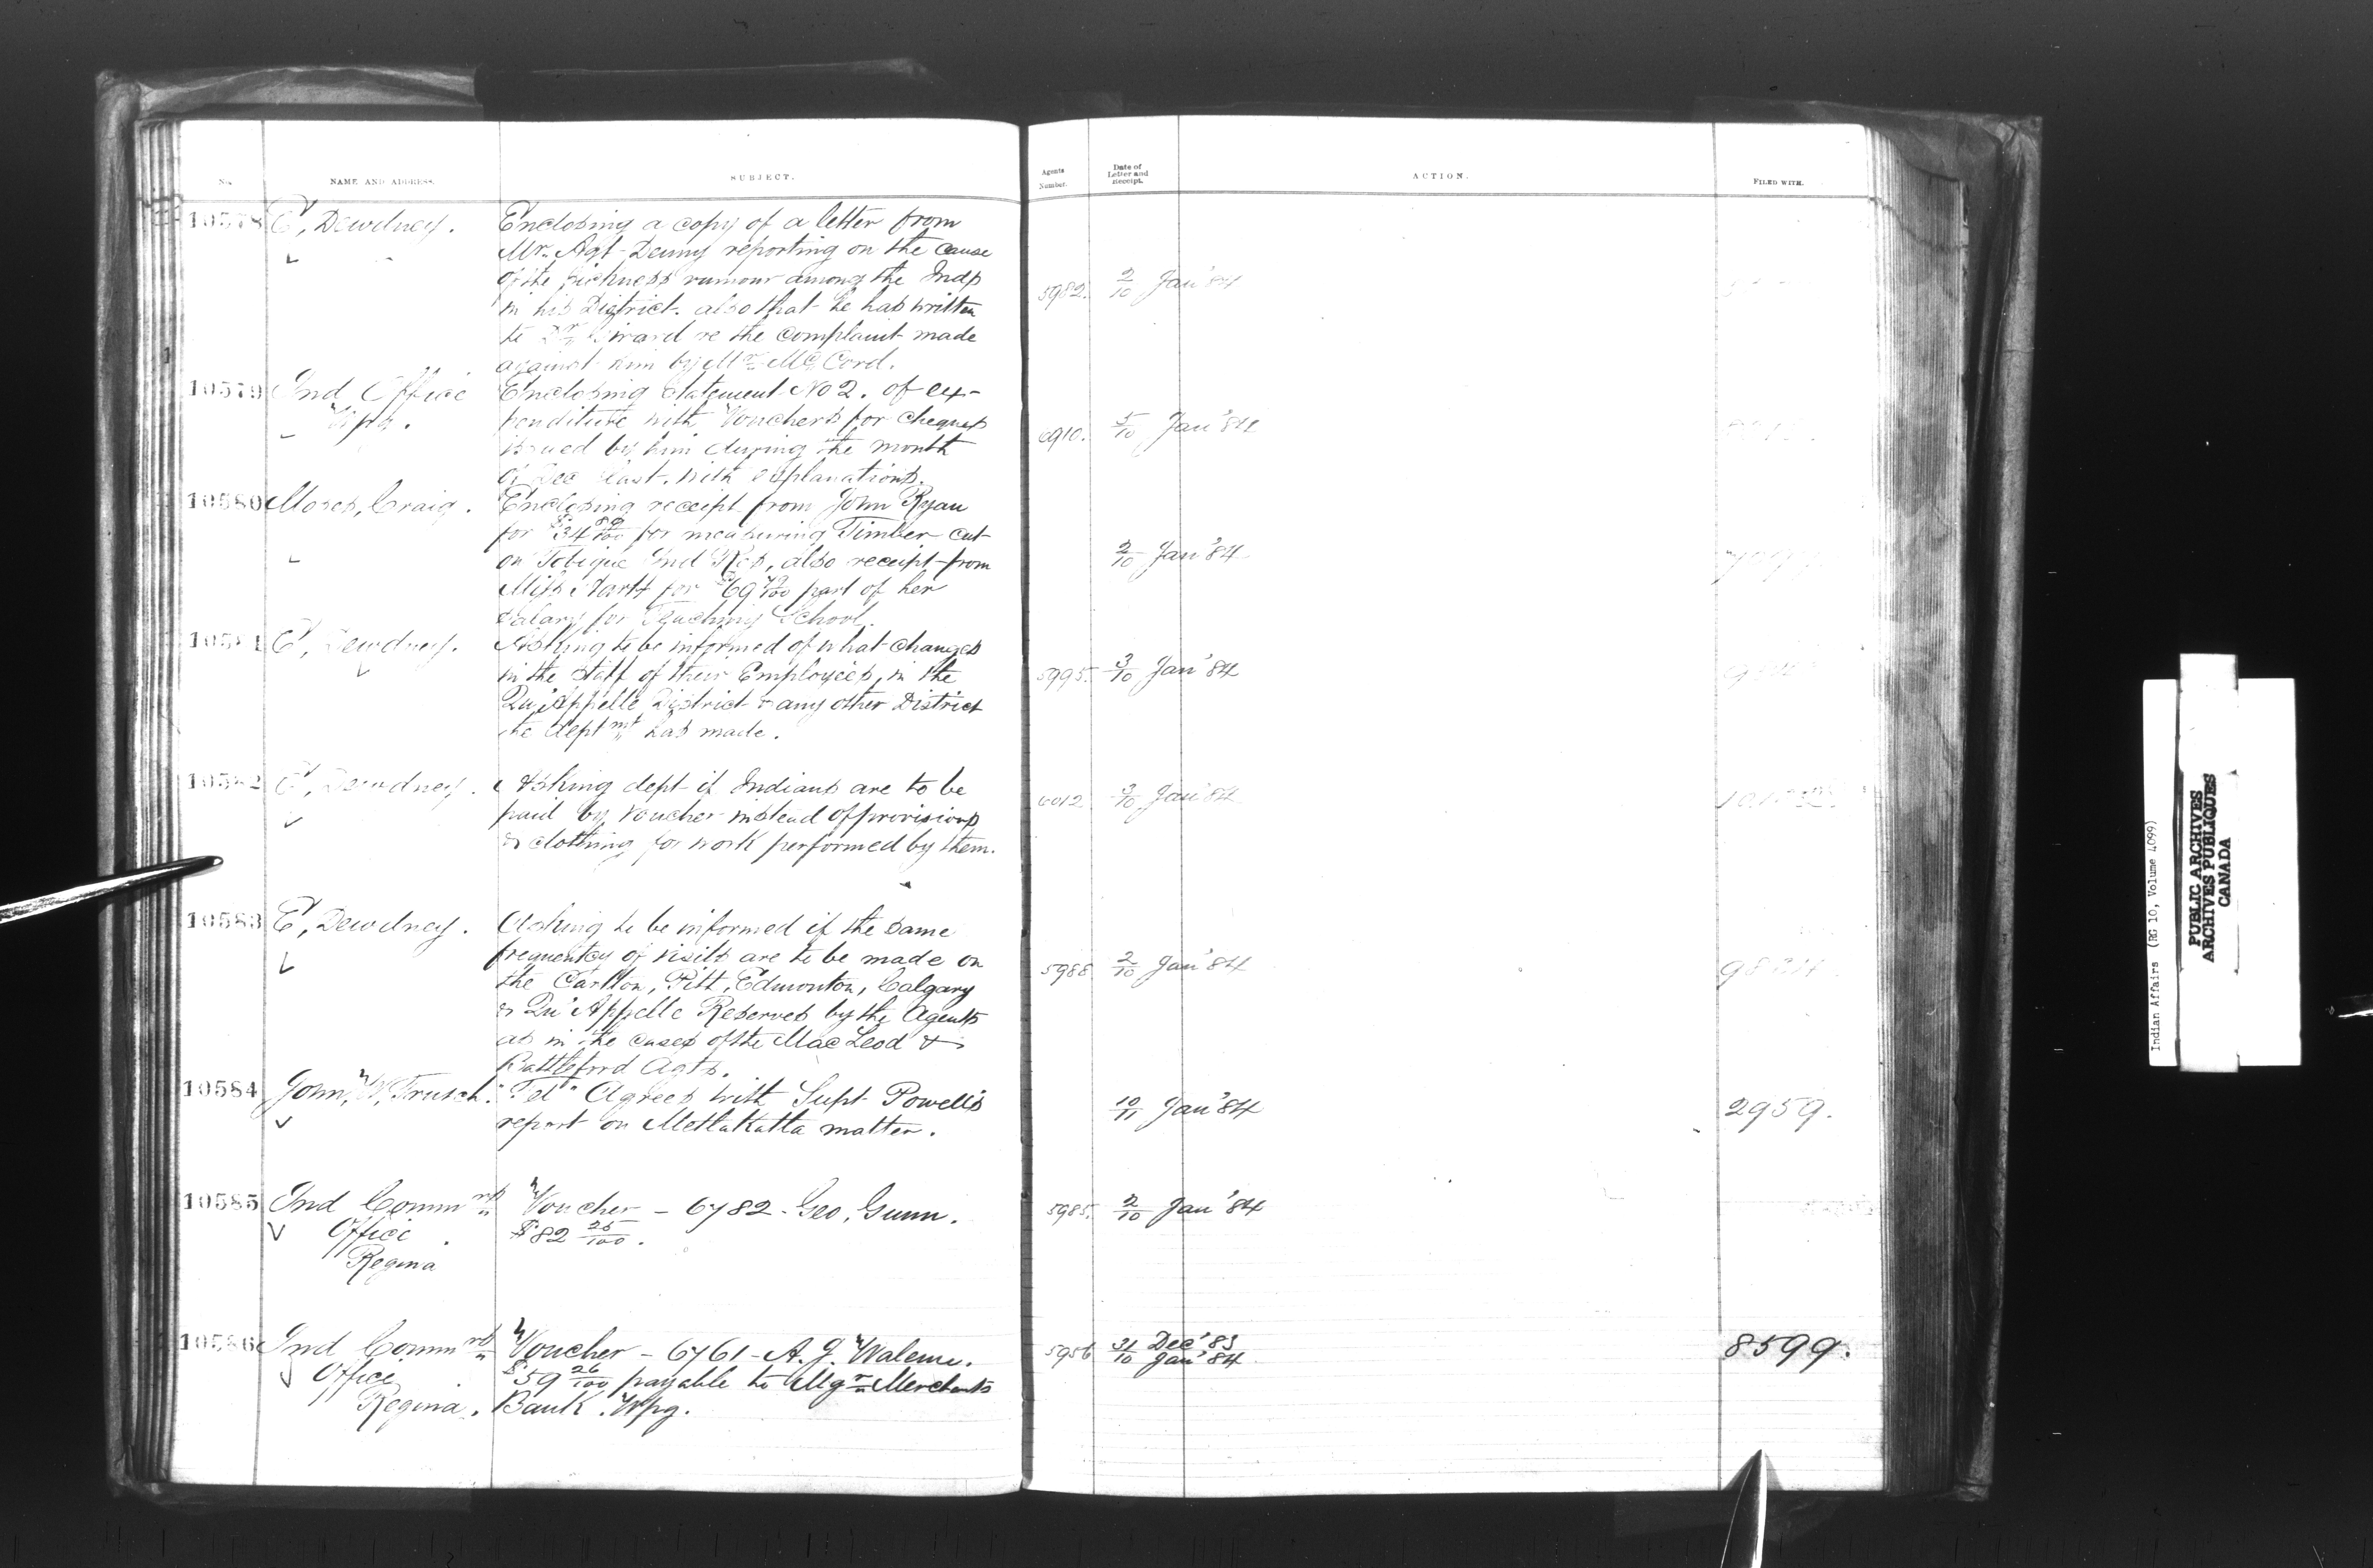 No. NAME AND ADDRESS. SUBJECT. Agents Number. Date of Letter and Receipt. ACTION. FILED WITH.
10578 E, Dewdney. Enclosing a copy of a letter from
Mr. Agt Denny reporting on the cause
of the sickness rumour among the Inds
in his District. also that he has written
5982. 2/10 Jan '84
to Dr Girard re the complaint made
against him by Mr McCord.
10579 Ind Office Enclosing Statement No 2. of ex-
Wpg. penditure with Vouchers for cheques
6910. 5/10 Jan '84
issued by him during the month
of Dec last. with explanations.
10580 Moses, Craig. Enclosing receipt from John Ryan
for $34 80/100 for measuring Timber cut
on Tobique Ind Res, also receipt from
2/10 Jan '84
Miss Hartt for $69 /100 part of her
salary for Teaching School.
10581 E, Dewdney. Asking to be informed of what changes
in the staff of their Employees, in the
5995. 3/10 Jan '84
Qu'Appelle District & any other District
the deptmt has made.
10582 E, Dewdney. Asking dept if Indians are to be
paid by Voucher instead of provisions
6012 3/10 Jan '84
& clothing for work performed by them.
10583 E, Dewdney. Asking to be informed if the same
frequentcy of visits are to be made on
5988 2/10 Jan '84
the Carlton, Pitt, Edmonton, Calgary
& Qu'Appelle Reserves by the Agents
as in the cases of the MacLeod &
Battleford Agts.
10584 John, W, Trusch. "Tel" Agrees with Supt Powell's
10/11 Jan '84 2959.
report on Metlakatla matter.
10585 Ind Commrs Voucher - 6782 - Geo, Gunn.
5985. 2/10 Jan '84
Office $82 25/100.
Regina
10586 Ind Commrs Voucher - 6761 - A. J.
5956 31/10 Dec '83 Jan '84 8599.
Office $59 26/100 payable to Mgr Merchants
Regina. Bank. Wpg.
Indian Affairs (RG 10, Volume 4099)
PUBLIC ARCHIVES
ARCHIVES PUBLIQUES
CANADA